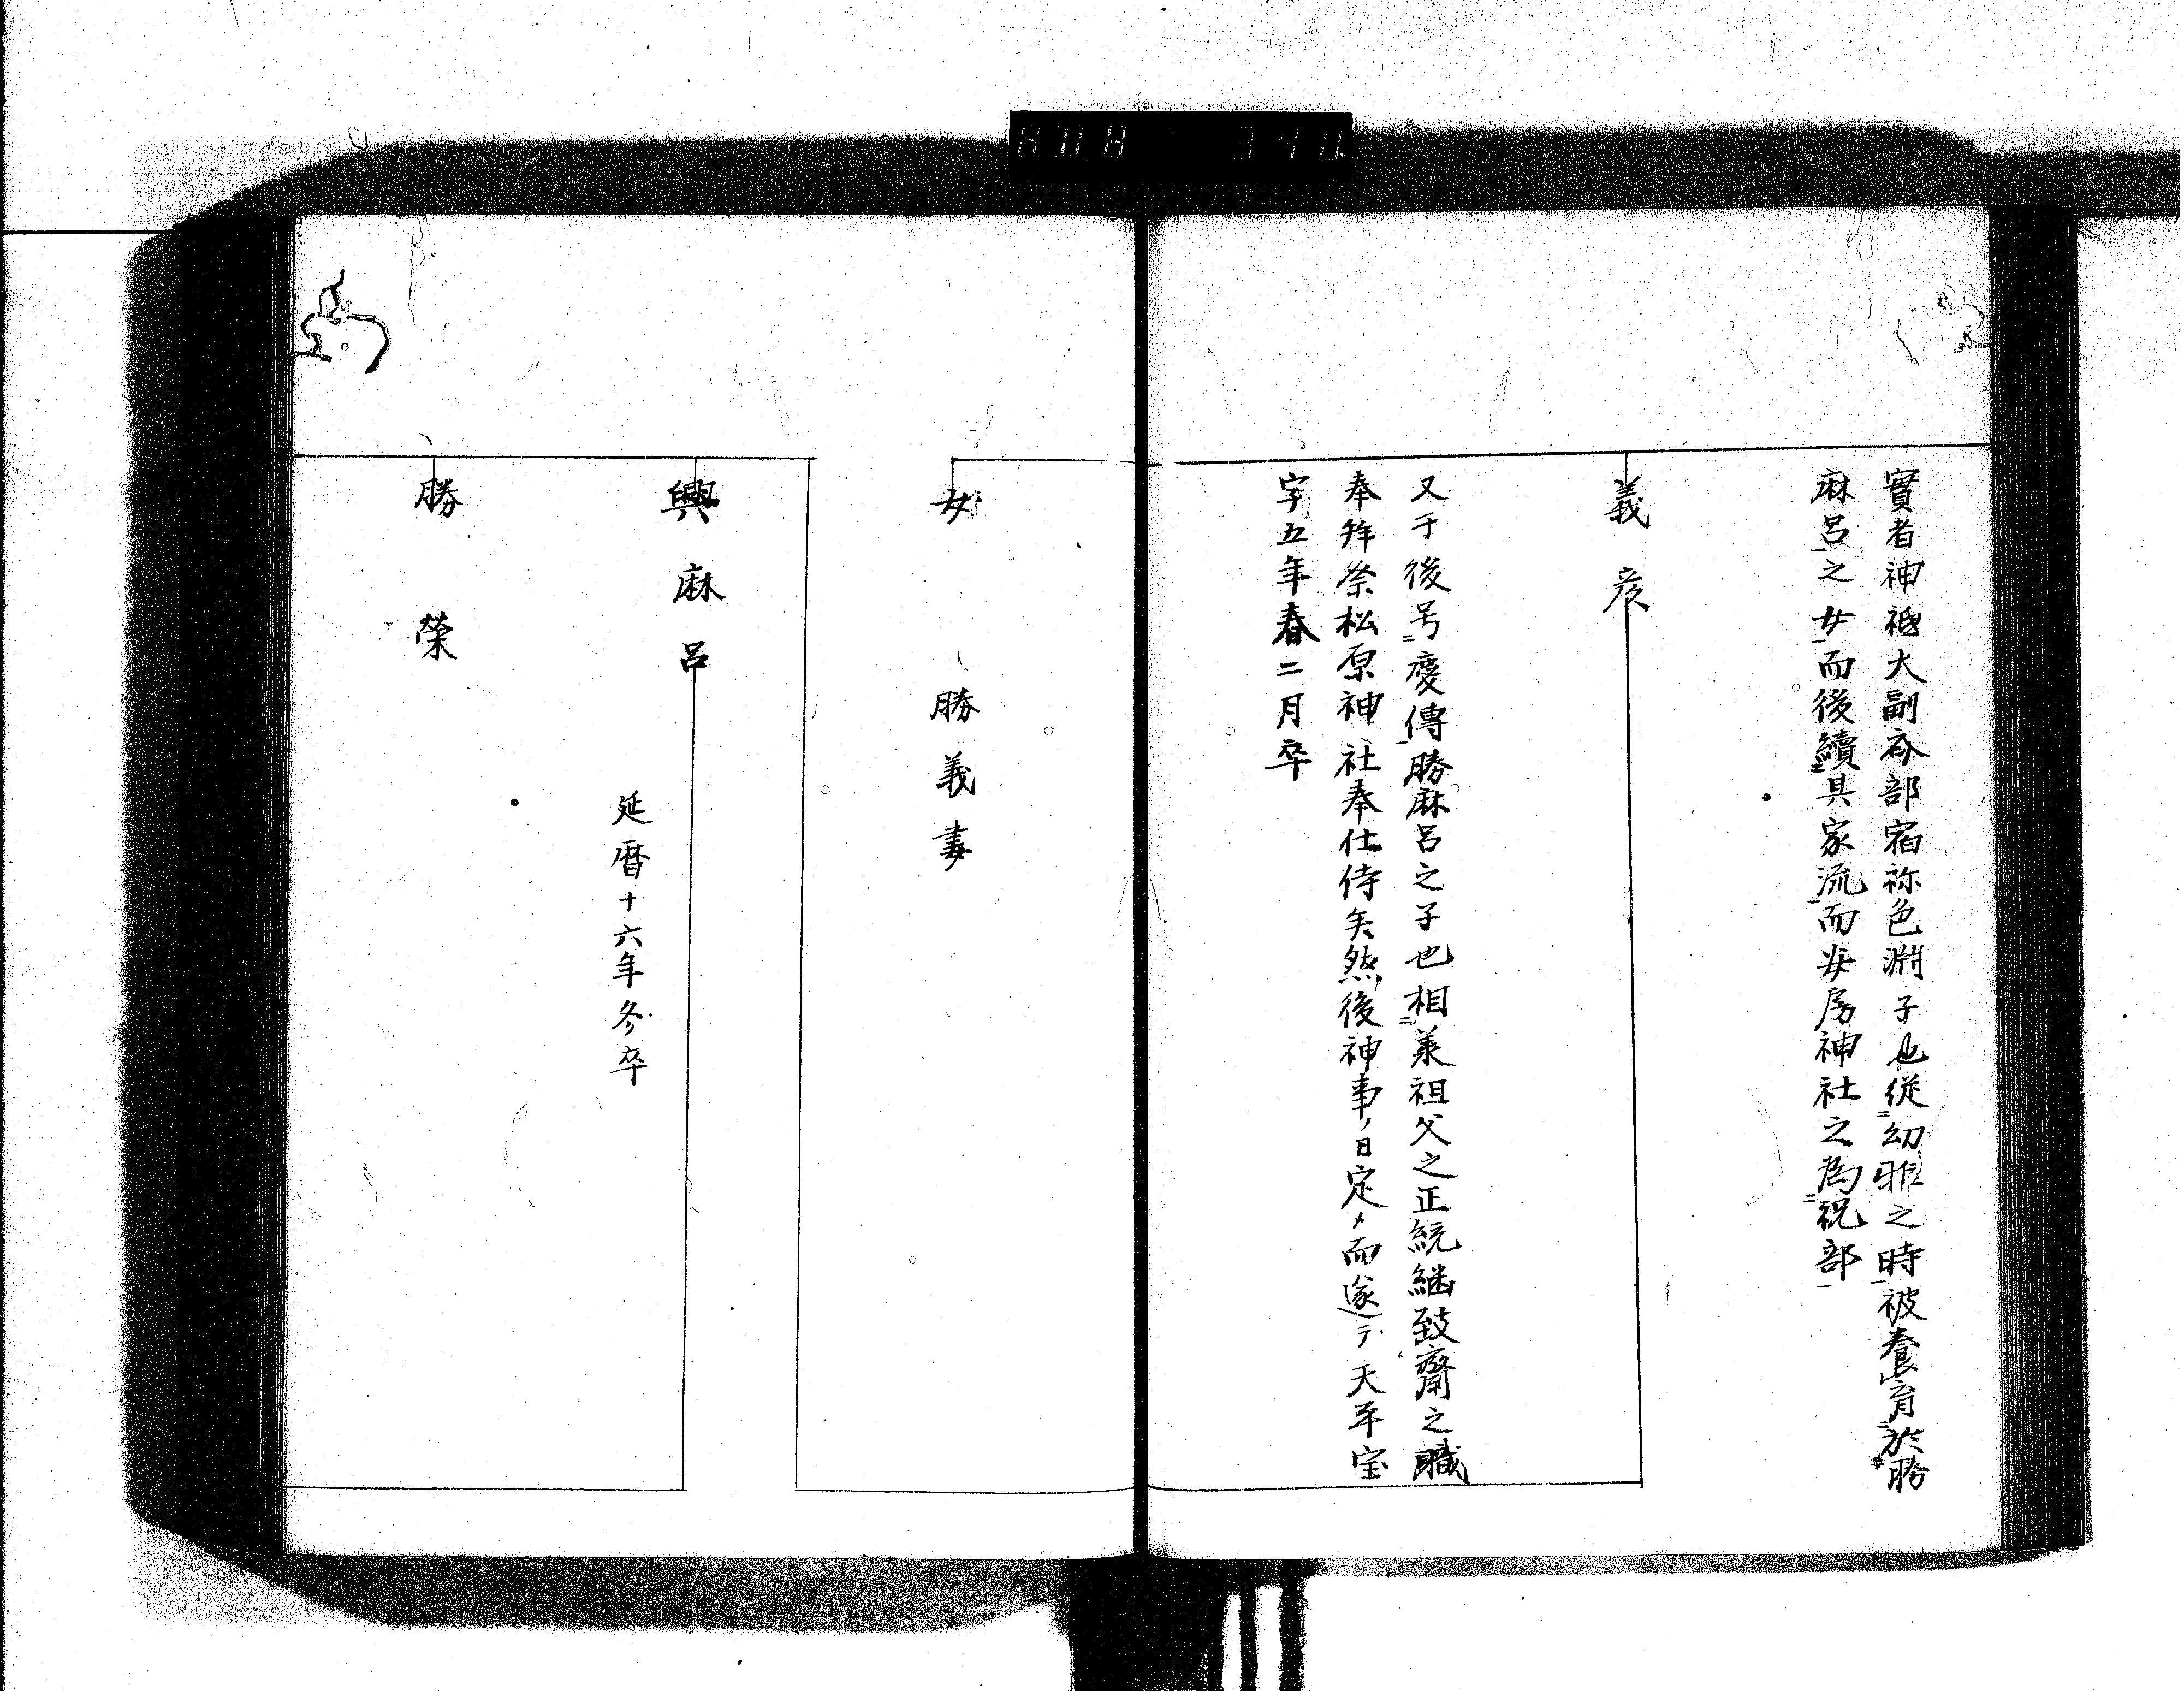 實者神祗大副斎部宿祢色淵子也従幼雅之時被養育於勝
麻呂之女而後續具家流而安房神社之為祝部
義彦
又于後号慶傳勝麻呂之子也相兼祖父之正統継致齋之職
奉拜祭松原神社奉仕侍矣然後神事ノ日定メ而遂テ天平宝
字五年春二月卒
女 勝義妻
興麻呂
延暦十六年冬卒
勝榮